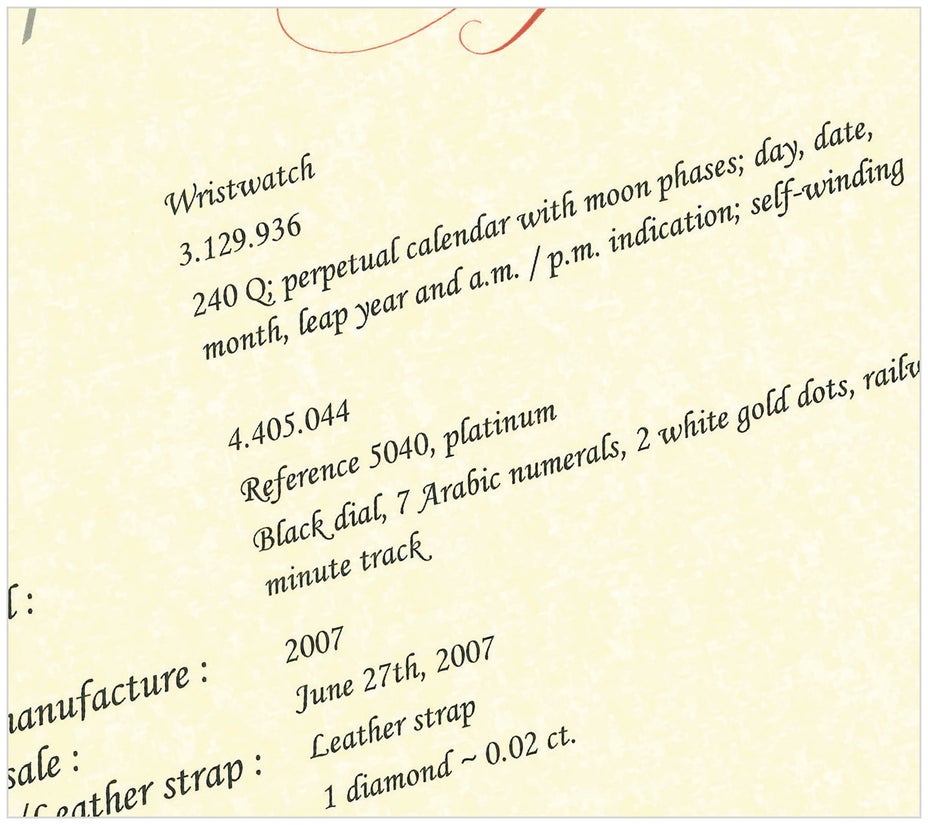 Wristwatch
3.129.936
240 Q; perpetual calendar with moon phases; day, date,
month, leap year and a.m. / p.m. indication; self-winding
4.405.044
Reference 5040, platinum
Black dial, 7 Arabic numerals, 2 white gold dots,
minute track
manufacture : 2007
sale : June 27th, 2007
/Leather strap : Leather strap
1 diamond ~ 0.02 ct.